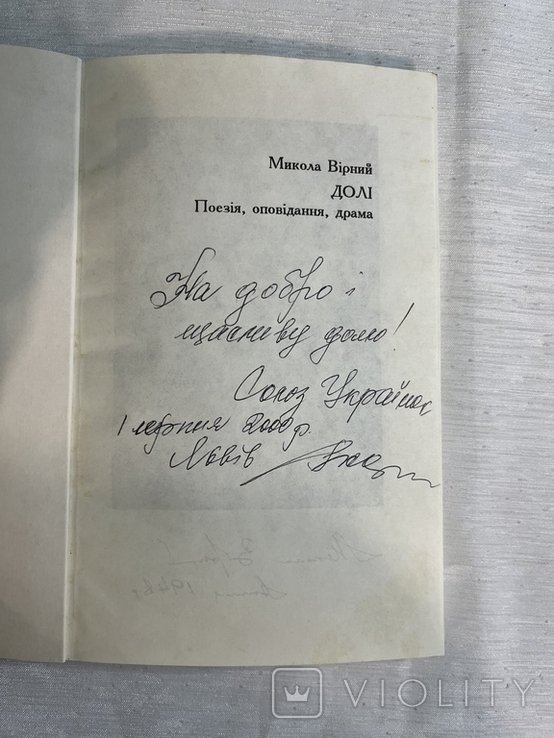 Микола Вірний
ДОЛІ
Поезія, оповідання, драма
На добро і
щасливу долю!
Союз Українок
1 серпня 2000 р.
Львів
VIOLITY